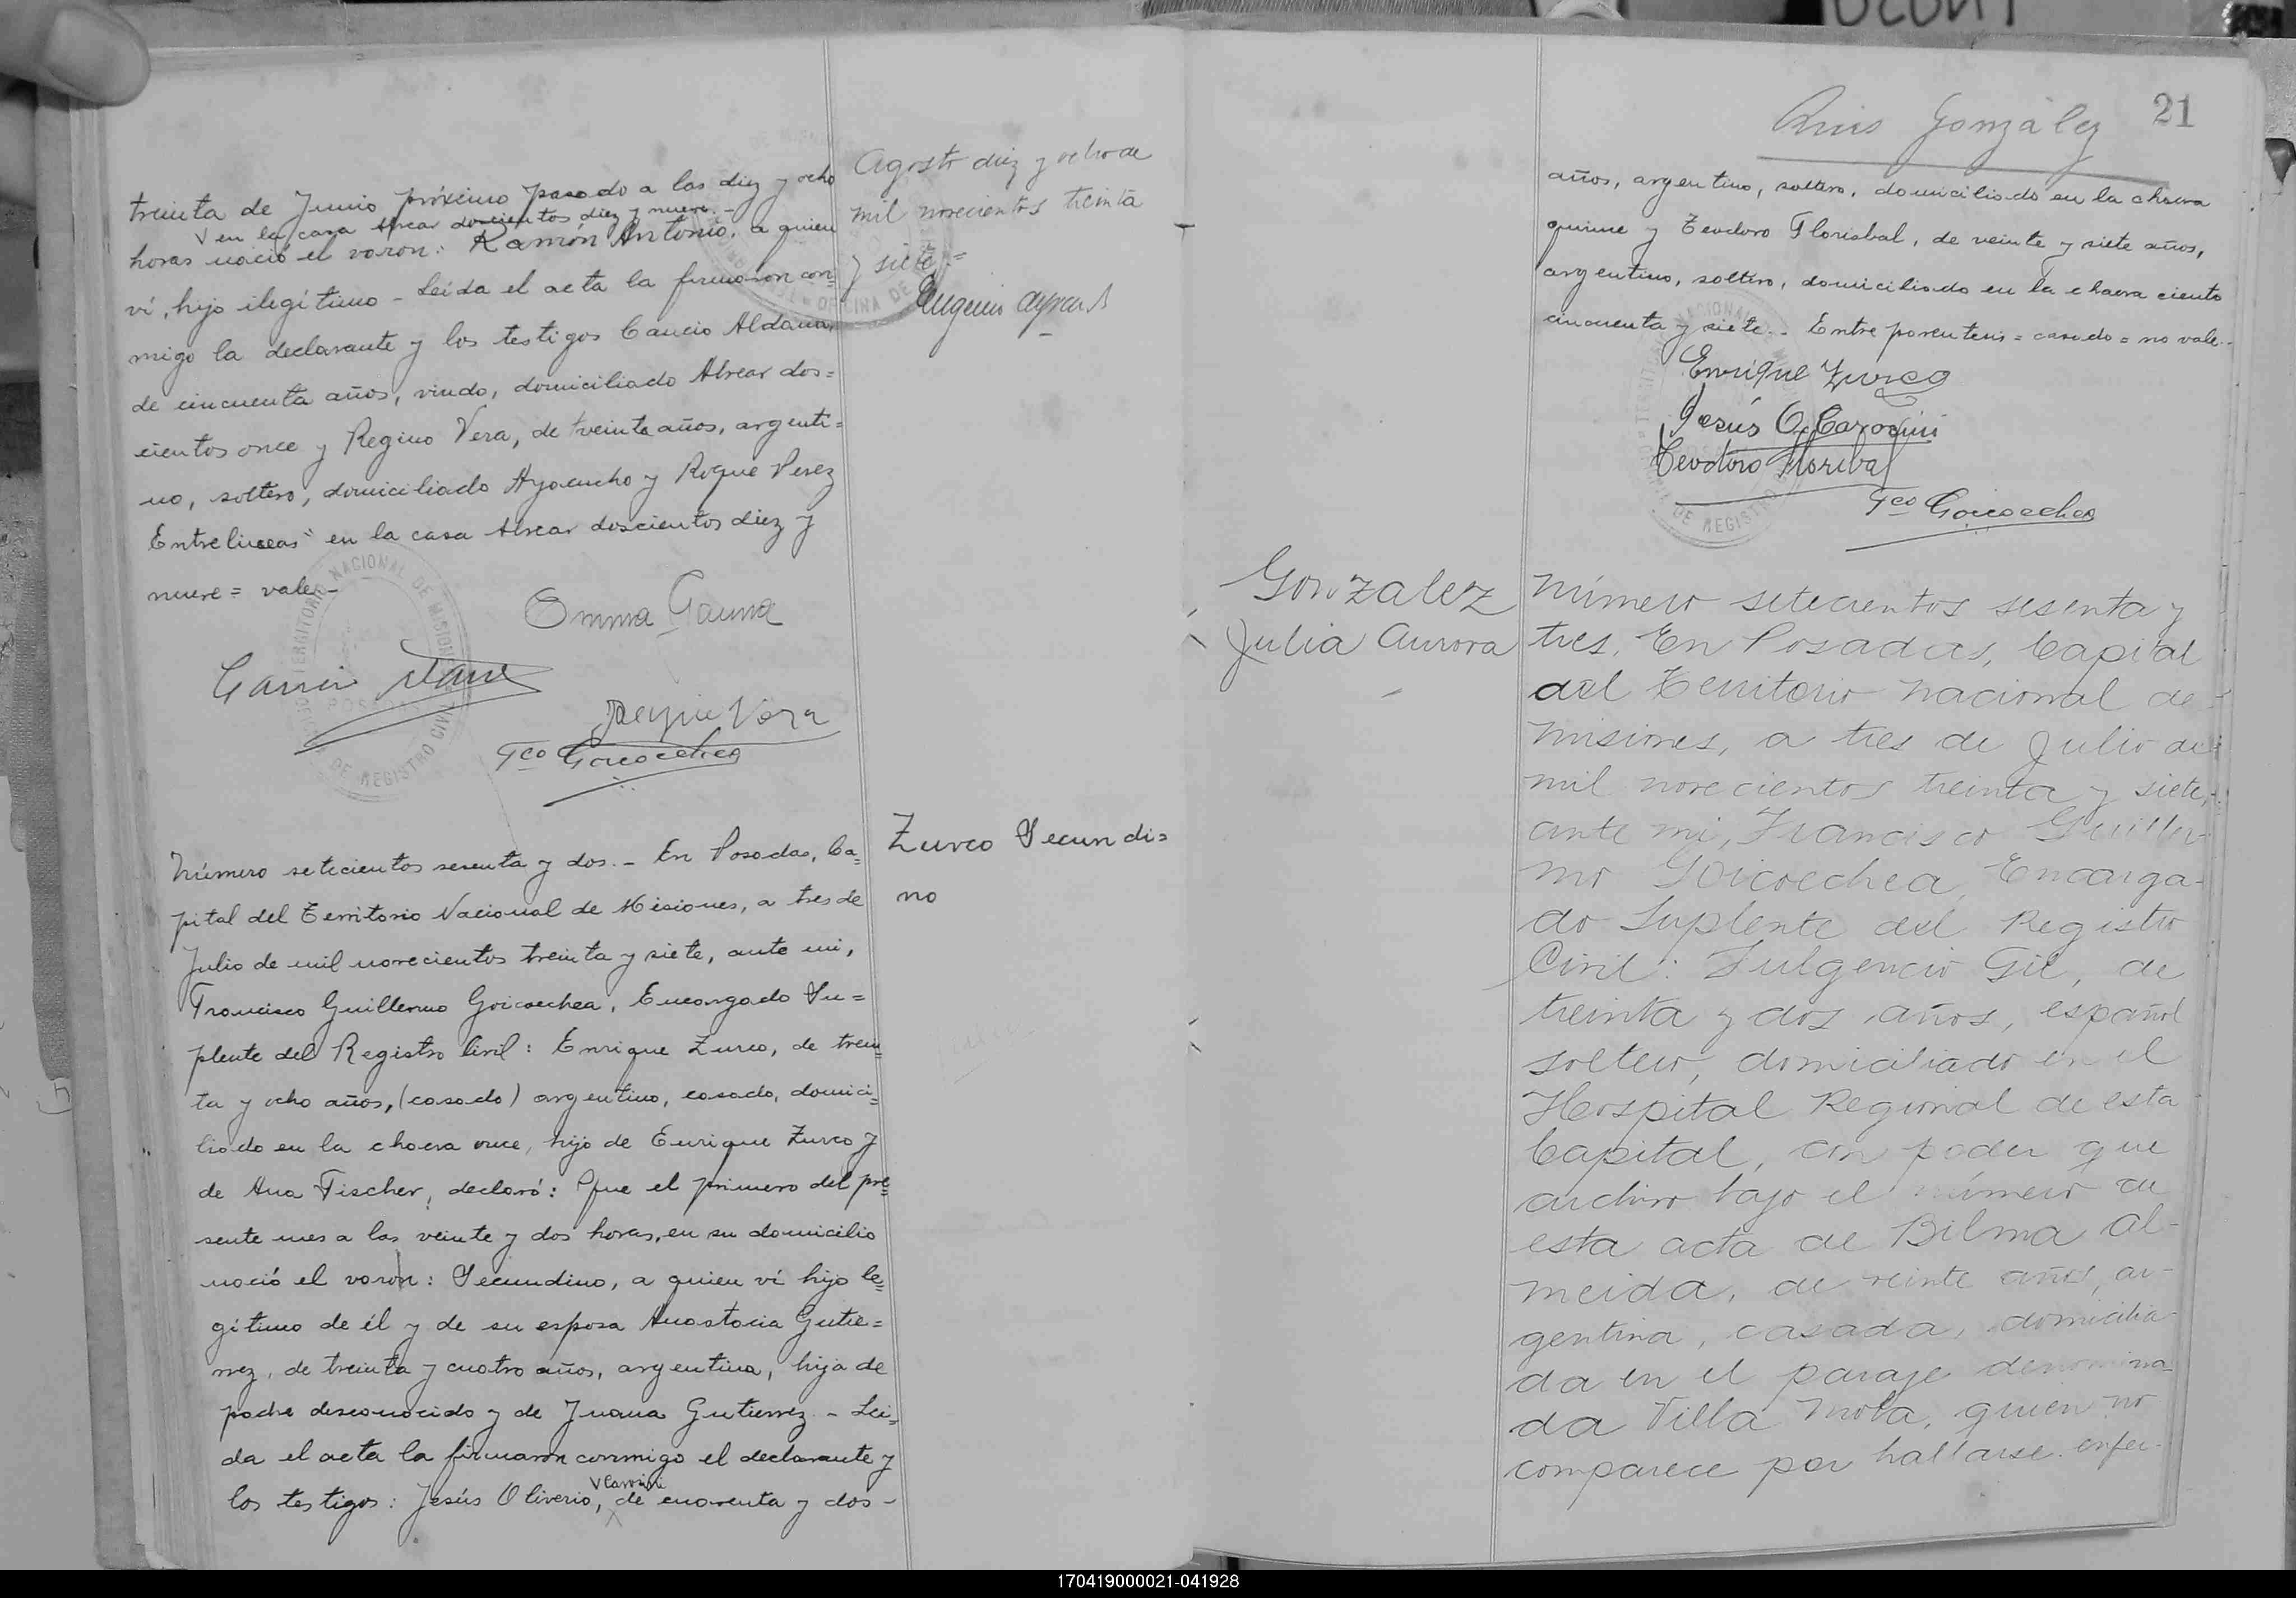 treinta de Junio próximo pasado a las diez y ocho
V en la casa Alvear doscientos diez y nueve.-
horas nació el varon: Ramón Antonio, a quien
ví, hijo ilegítimo - Leída el acta la firmaron con-
migo la declarante y los testigos Cancio Aldana,
de cincuenta años, viudo, domiciliado Alvear dos=
cientos once y Regino Vera, de treinta años, argenti=
no, soltero, domiciliado Ayacucho y Roque Perez
Entrelineas" en la casa Alvear doscientos diez y
nueve = vale-
Omma Gauna
Regino Vera
Fco Goicoechea
Agosto diez y ocho de
mil novecientos treinta
y siete.=
Eugenio
Número setecientos sesenta y dos.- En Posadas, Ca=
pital del Territorio Nacional de Misiones, a tres de
Julio de mil novecientos treinta y siete, ante mi,
Francisco Guillermo Goicoechea, Encargado Su=
plente del Registro Civil: Enrique Zurco, de trein=
ta y ocho años, (casado) argentino, casado, domici=
liado en la chacra once, hijo de Enrique Zurco y
de Ana Fischer, declaró: Que el primero del pre=
sente mes a las veinte y dos horas, en su domicilio
nació el varon: Secundino, a quien ví hijo le=
gítimo de él y de su esposa Anastacia Gutie=
rrez, de treinta y cuatro años, argentina, hija de
padre desconocido y de Juana Gutierrez - Leí=
da el acta la firmaron conmigo el declarante y
V Carosini
los testigos: Jesús Oliverio, de cuarenta y dos -
Zurco Secundi=
no
Luis González 21
años, argentino, soltero, domiciliado en la chacra
quince y Teodoro Florisbal, de veinte y siete años,
argentino, soltero, domiciliado en la chacra ciento
cincuenta y siete.- Entre parentesis = casado = no vale.-
Enrique Zurco
Jesús O. Carosini
Teodoro Florisbal
Fco Goicoechea
Gonzalez
Julia Aurora
Número setecientos sesenta y
tres. En Posadas, Capital
del Territorio Nacional de
Misiones, a tres de Julio de
mil novecientos treinta y siete,
ante mi, Francisco Guiller-
mo Goicoechea, Encarga-
do Suplente del Registro
Civil: Fulgencio Gil, de
treinta y dos años, español
soltero, domiciliado en el
Hospital Regional de esta
Capital, con poder que
archivo bajo el número de
esta acta de Bilma Al-
meida, de veinte años, ar-
gentina, casada, domicilia-
da en el paraje denomina-
da Villa Mota, quien no
comparece por hallarse enfer-
170419000021-041928